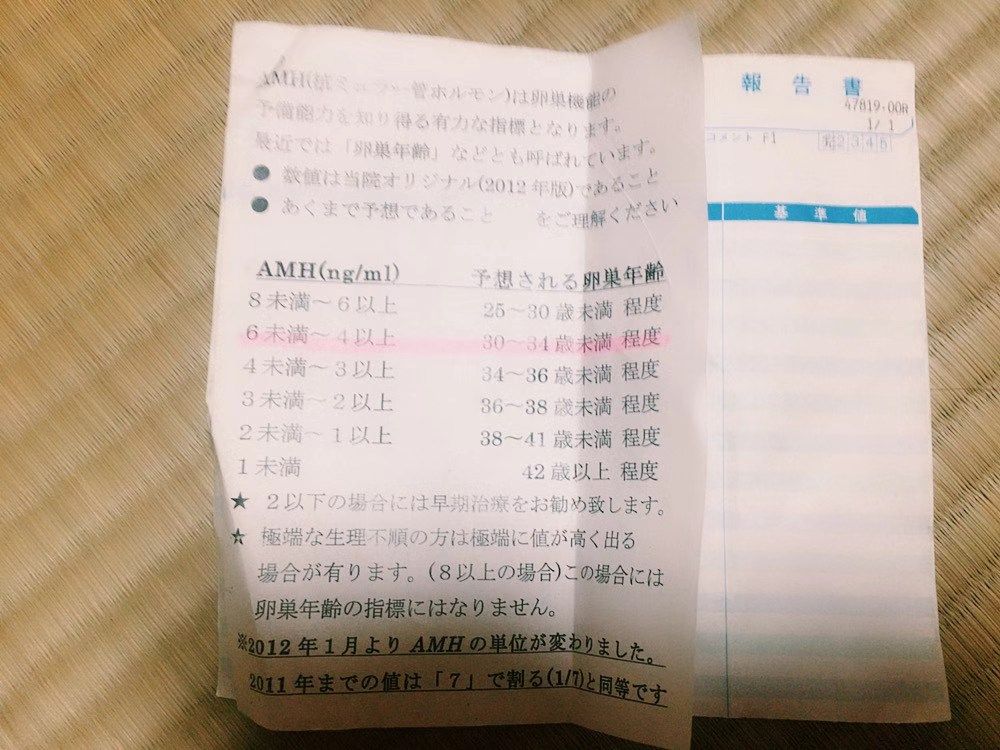 AMH(抗ミュラー管ホルモン)は卵巣機能の
予備能力を知り得る有力な指標となります。
最近では「卵巣年齢」などとも呼ばれています。
● 数値は当院オリジナル(2012年版)であること
● あくまで予想であること をご理解ください
AMH(ng/ml) 予想される卵巣年齢
8未満～6以上 25～30歳未満 程度
6未満～4以上 30～34歳未満 程度
4未満～3以上 34～36歳未満 程度
3未満～2以上 36～38歳未満 程度
2未満～1以上 38～41歳未満 程度
1未満 42歳以上 程度
★ 2以下の場合には早期治療をお勧め致します。
★ 極端な生理不順の方は極端に値が高く出る
場合が有ります。(8以上の場合)この場合には
卵巣年齢の指標にはなりません。
※2012年1月よりAMHの単位が変わりました。
2011年までの値は「7」で割る(1/7)と同等です
報告書
47819-00R
1/ 1
コメント F1
2 3 4 5
基準値